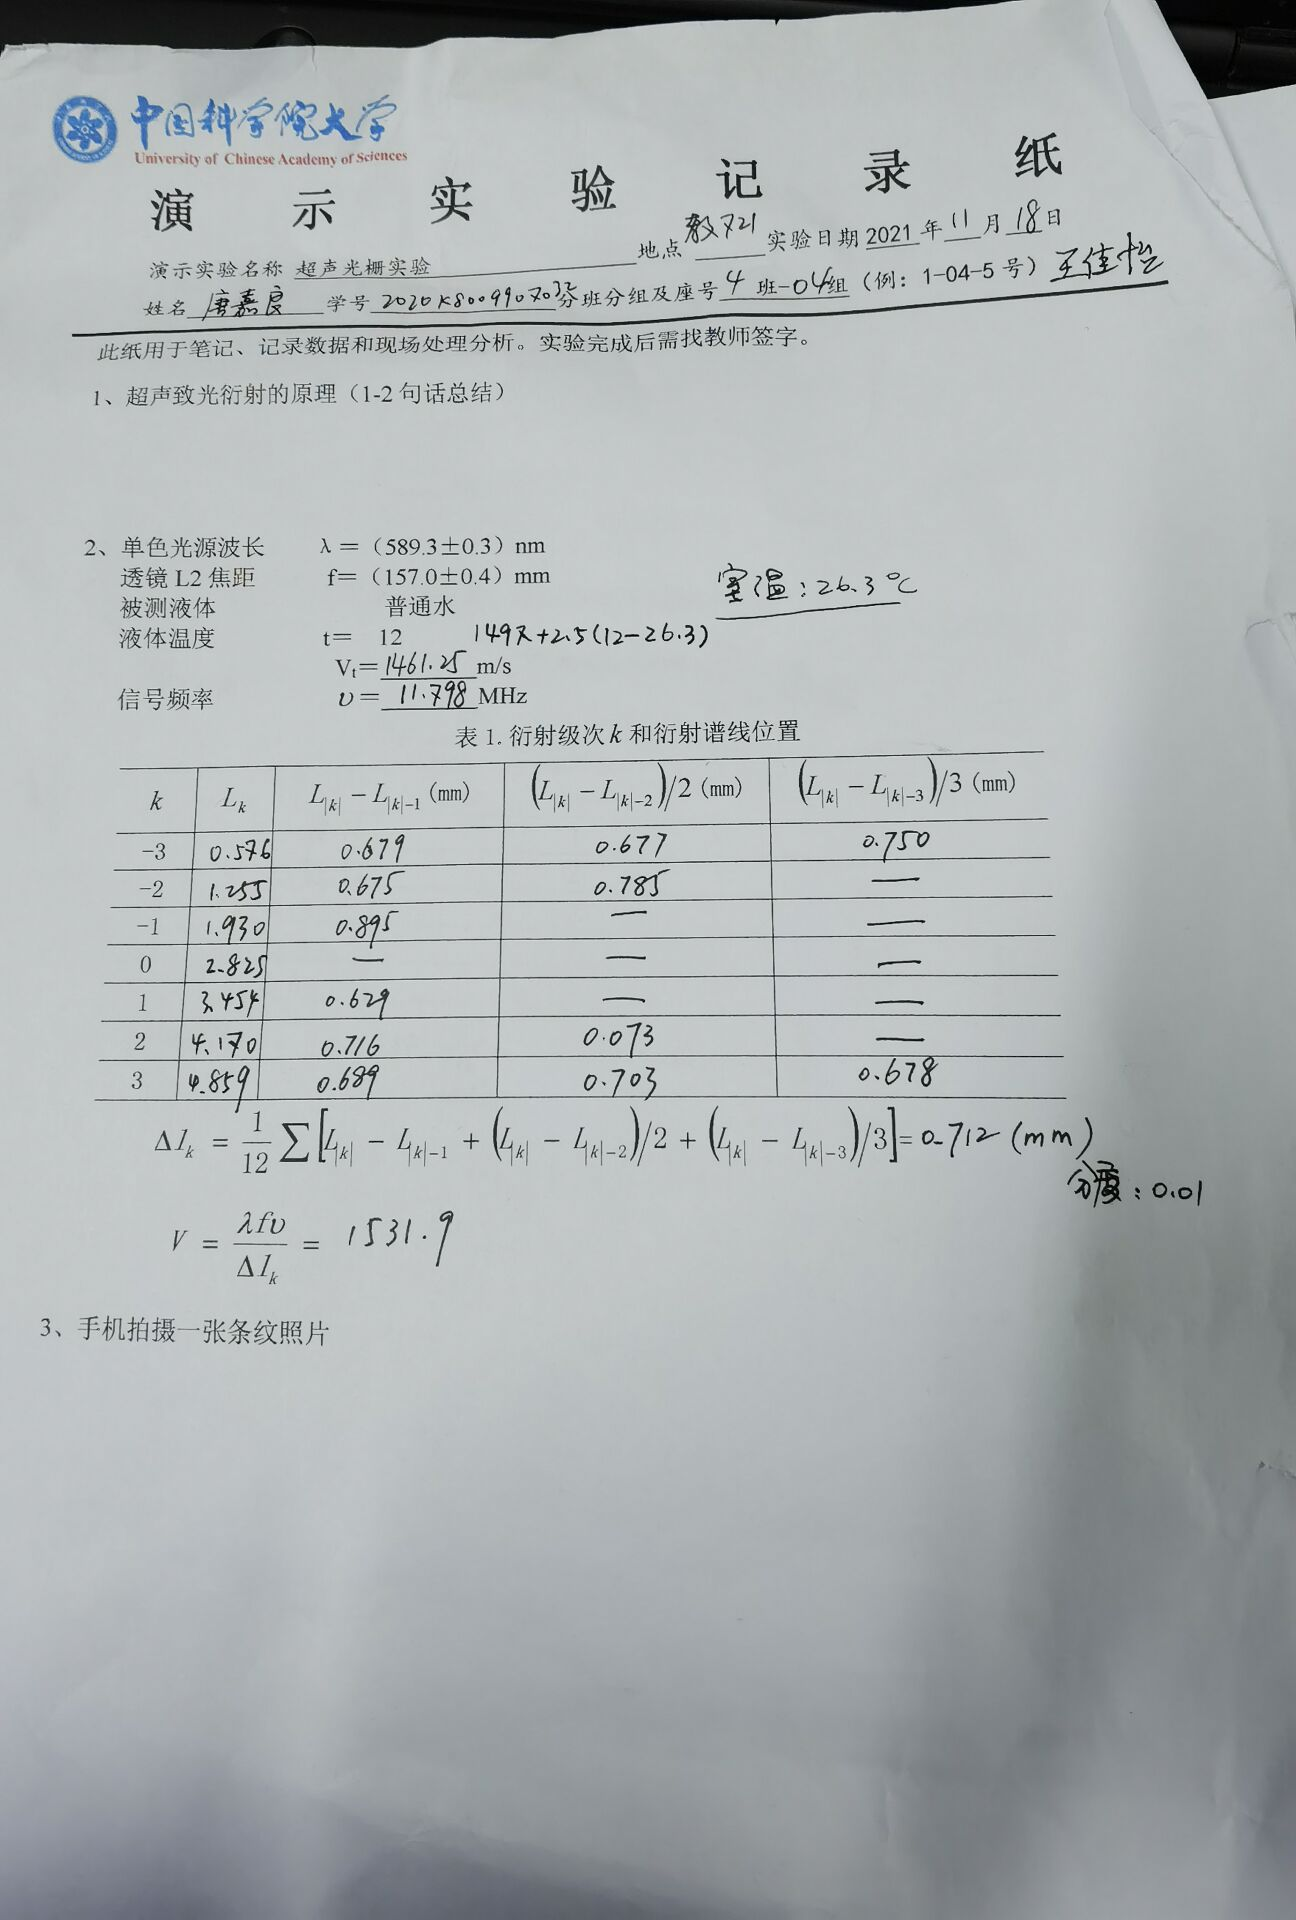 中国科学院大学
University of Chinese Academy of Sciences
演示实验记录纸
演示实验名称 超声光栅实验 地点 教721 实验日期 2021 年 11 月 18 日
姓名 唐嘉良 学号 2020K8009907032 分班分组及座号 4 班-04组 (例：1-04-5 号) 王佳怡
此纸用于笔记、记录数据和现场处理分析。实验完成后需找教师签字。
1、超声致光衍射的原理（1-2 句话总结）
2、单色光源波长 λ＝（589.3±0.3）nm
透镜 L2 焦距 f＝（157.0±0.4）mm
室温：26.3℃
被测液体 普通水
液体温度 t＝ 12 1497+2.5(12-26.3)
Vt＝1461.25 m/s
信号频率 υ＝ 11.798 MHz
表 1. 衍射级次 k 和衍射谱线位置
k L_k L_|k| − L_|k|−1 (mm) (L_|k| − L_|k|−2)/2 (mm) (L_|k| − L_|k|−3)/3 (mm)
-3 0.576 0.679 0.677 0.750
-2 1.255 0.675 0.785 —
-1 1.930 0.895 — —
0 2.825 — — —
1 3.454 0.629 — —
2 4.170 0.716 0.073 —
3 4.859 0.689 0.703 0.678
Δl_k = 1/12 ∑[L_|k| − L_|k|−1 + (L_|k| − L_|k|−2)/2 + (L_|k| − L_|k|−3)/3] = 0.712 (mm)
分度：0.01
V = λfυ/Δl_k = 1531.9
3、手机拍摄一张条纹照片